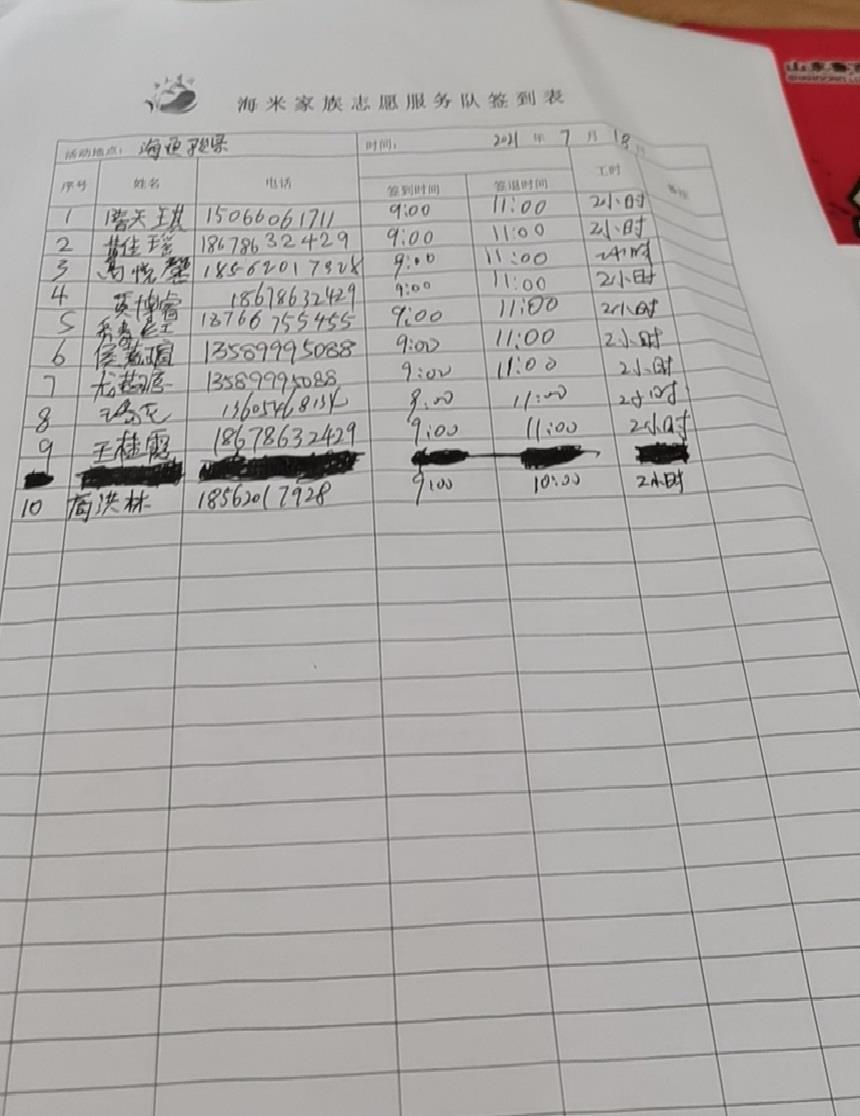 海米家族志愿服务队签到表
活动地点: 海通 时间: 2021 年 7 月 18 日
序号 姓名 电话 签到时间 签退时间 工时 备注
1 天琪 15066061711 9:00 11:00 2小时
2 黄佳瑶 18678632429 9:00 11:00 2小时
3 高悦馨 18562017928 9:00 11:00 2小时
4 黄博睿 18678632429 9:00 11:00 2小时
5 13766755455 9:00 11:00 2小时
6 13589995088 9:00 11:00 2小时
7 13589995088 9:00 11:00 2小时
8 8:00 11:00 2小时
9 王桂霞 18678632429 9:00 11:00 2小时
10 高洪林 18562017928 9:00 10:00 2小时
山东